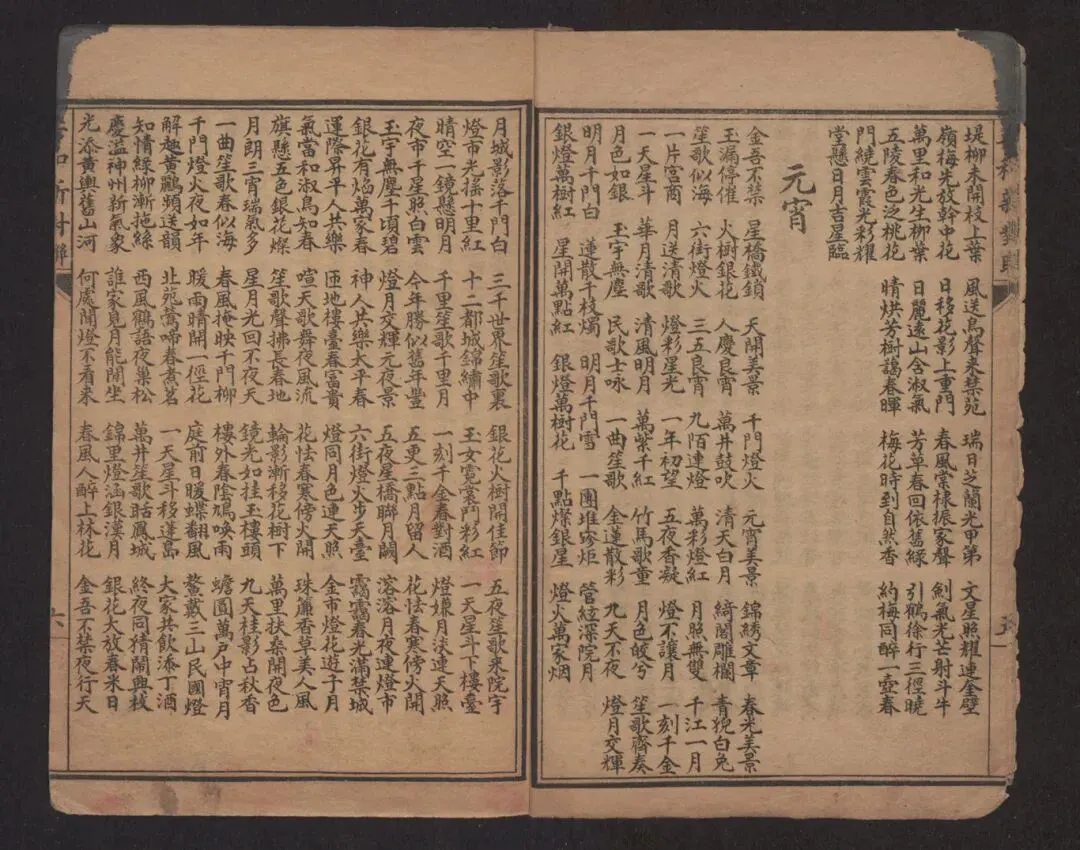 堤柳未開枝上葉 風送鳥聲来禁苑 瑞日芝蘭光甲第 文星照耀連金壁
嶺梅先放幹中花 日移花影上重門 春風棠棣振家聲 劍氣光芒射斗牛
萬里和光生柳葉 日麗遠山含淑氣 芳草春回依舊綠 引鶴徐行三徑曉
五陵春色泛桃花 晴烘芳樹藹春暉 梅花時到自然香 約梅同醉一壺春
門繞雲霞光彩耀
堂懸日月吉星臨
元宵
金吾不禁 星橋鐵鎖 天開美景 千門燈火 元宵美景 錦綉文章 春光美景
玉漏停催 火樹銀花 人慶良宵 萬井鼓吹 清天白月 綺閣雕欄 青白兔
笙歌似海 六街燈火 三五良宵 九陌連燈 萬彩燈紅 月照無雙 千江一月
一片宮商 月送清歌 燈彩星光 一年初望 五夜香凝 燈不讓月 一刻千金
一天星斗 華月清歌 清風明月 萬紫千紅 竹馬歌童 月色皎兮 笙歌齊奏
月色如銀 玉宇無塵 民歌士咏 一曲笙歌 金蓮散彩 九天不夜 燈月交輝
明月千門白 蓮散千枝燭 明月千門雪 一團堆寶炬 管絃深院月
銀燈萬樹紅 星開萬點紅 銀燈萬樹花 千點燦銀星 燈火萬家烟
月城影落千門白 三千世界笙歌裏 銀花火樹開佳節 五夜笙歌来院宇
燈市光摇十里紅 十二都城錦繡中 玉女霓裳鬥彩紅 一天星斗下樓臺
晴空一鏡懸明月 千里笙歌千里月 一刻千金春對酒 燈嫌月淡連天照
夜市千星照白雲 今年勝似舊年豐 五更三點月留人 花怯春寒傍火開
玉宇無塵千頃碧 燈月交輝元夜景 五夜星橋聯月闕 溶溶月夜連燈市
銀花有焰萬家春 神人共樂太平春 六街燈火步天臺 靄靄春光滿禁城
運際昇平人共樂 匝地樓臺春富貴 燈同月色連天照 金市燈花遊子月
氣當和淑鳥知春 喧天歌舞夜風流 花怯春寒傍火開 珠廉香草美人風
旗懸五色銀花燦 笙歌聲拂長春地 輪影漸移花樹下 萬里扶桑開夜色
月朗三宵瑞氣多 星月光回不夜天 鏡光如挂玉樓頭 九天桂影占秋香
一曲笙歌春似海 春風掩映千門柳 樓外春陰鳩喚雨 蟾圓萬户中宵月
千門燈火夜如年 暖雨晴開一徑花 庭前日暖蝶翻風 鰲戴三山民國燈
解趣黃鸝頻送韻 北苑鶯啼春煮茗 一天星斗移蓬島 大家共飲添丁酒
知情綠柳漸拖絲 西風鶴語夜巢松 萬井笙歌聒鳳城 終夜同猜鬧興枚
慶溢神州新氣象 誰家見月能閒坐 錦里燈涵銀漢月 銀花大放春来日
光添黃輿舊山河 何處聞燈不看来 春風人醉上林花 金吾不禁夜行天
六